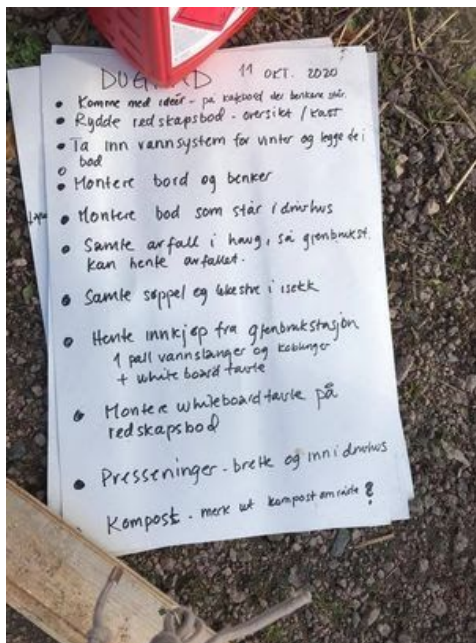 DUGNAD 11 OKT. 2020
• Komme med ideér - på kakebord der benkene står.
• Rydde redskapsbod - oversikt / kast
• Ta inn vannsystem for vinter og legge de i
bod
• Montere bord og benker
• Montere bod som står i drivhus
• Samle avfall i haug, så gjenbrukst.
kan hente avfallet.
• Samle søppel og i sekk
• Hente innkjøp fra gjenbrukstasjon
1 pall vannslanger og koblinger
+ white board tavle
• Montere whiteboard tavle på
redskapsbod
• Presseninger - brette og inn i drivhus
Kompost - merk ut kompostområde ?